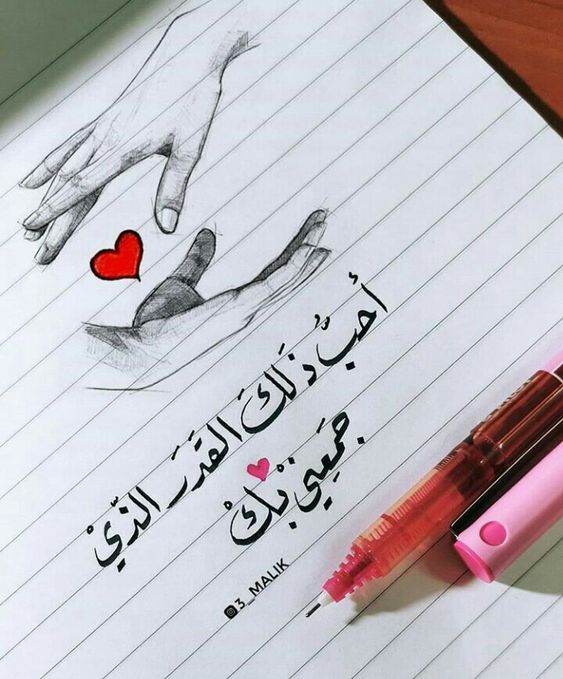 أحبُّ ذَلكَ القَدَرَ الذّيْ
جَمَعِني بْكْ
3_MALIK